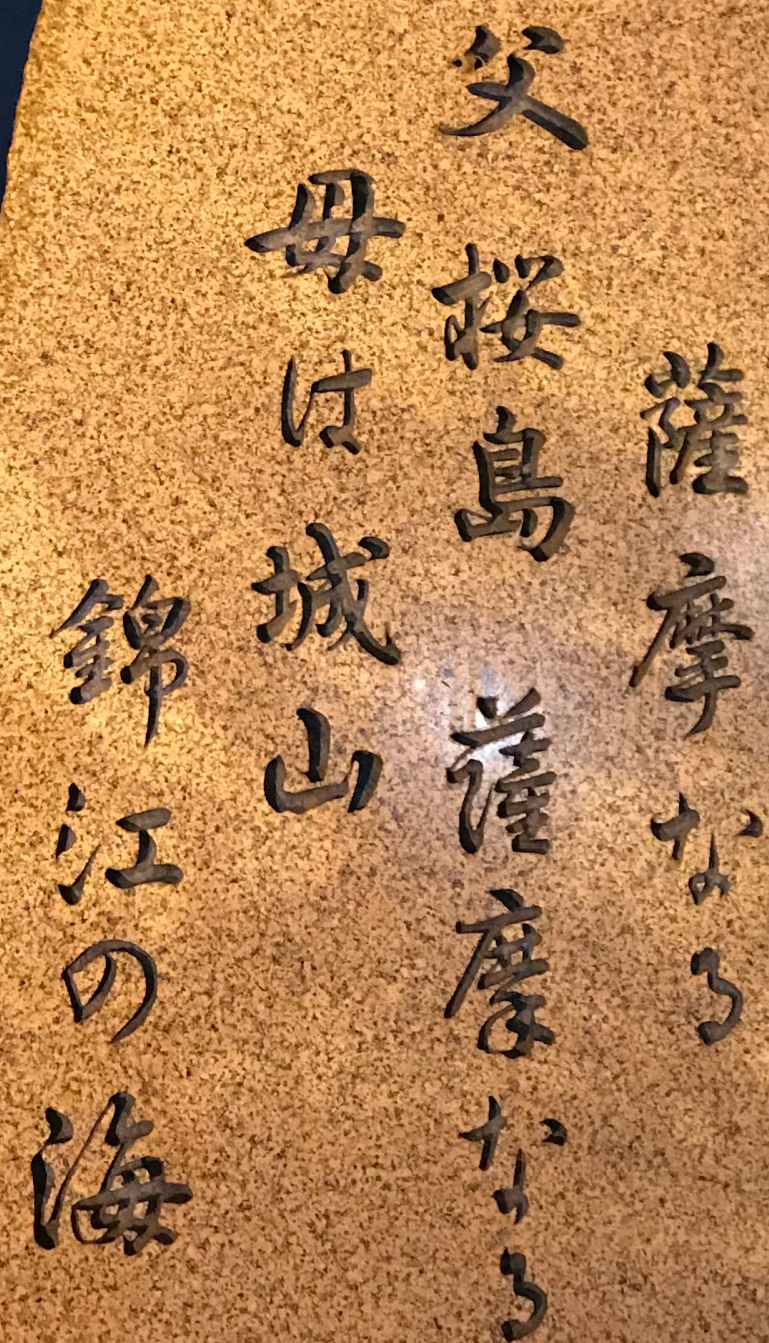 薩摩なる
父桜島 薩摩なる
母は城山
錦江の海